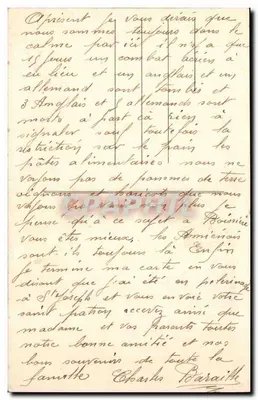 Apresent je vous dirais que
nous sommes toujours dans le
calme par ici il n'y a que
15 jours un combat aérien à
eu lieu et un anglais et un
allemand sont tombés et
3 Anglais et 2 allemands sont
morts à part ça rien à
signaler sauf toutefois la
restriction sur le pain les
pâtes alimentaires nous ne
voyons pas de pommes de terre
et haricots que nous
voyons plus je
pense qu'a ce sujet a Boissière
vous êtes mieux. les Amiénois
sont ils toujours là Enfin
je termine ma carte en vous
disant que j'ai été en pelerinage
à St Joseph et vous en voie votre
saint patron recevez ainsi que
madame et vos parents toutes
notre bonne amitié et nos
bons souvenirs de toute la
famille Charles Baraitte